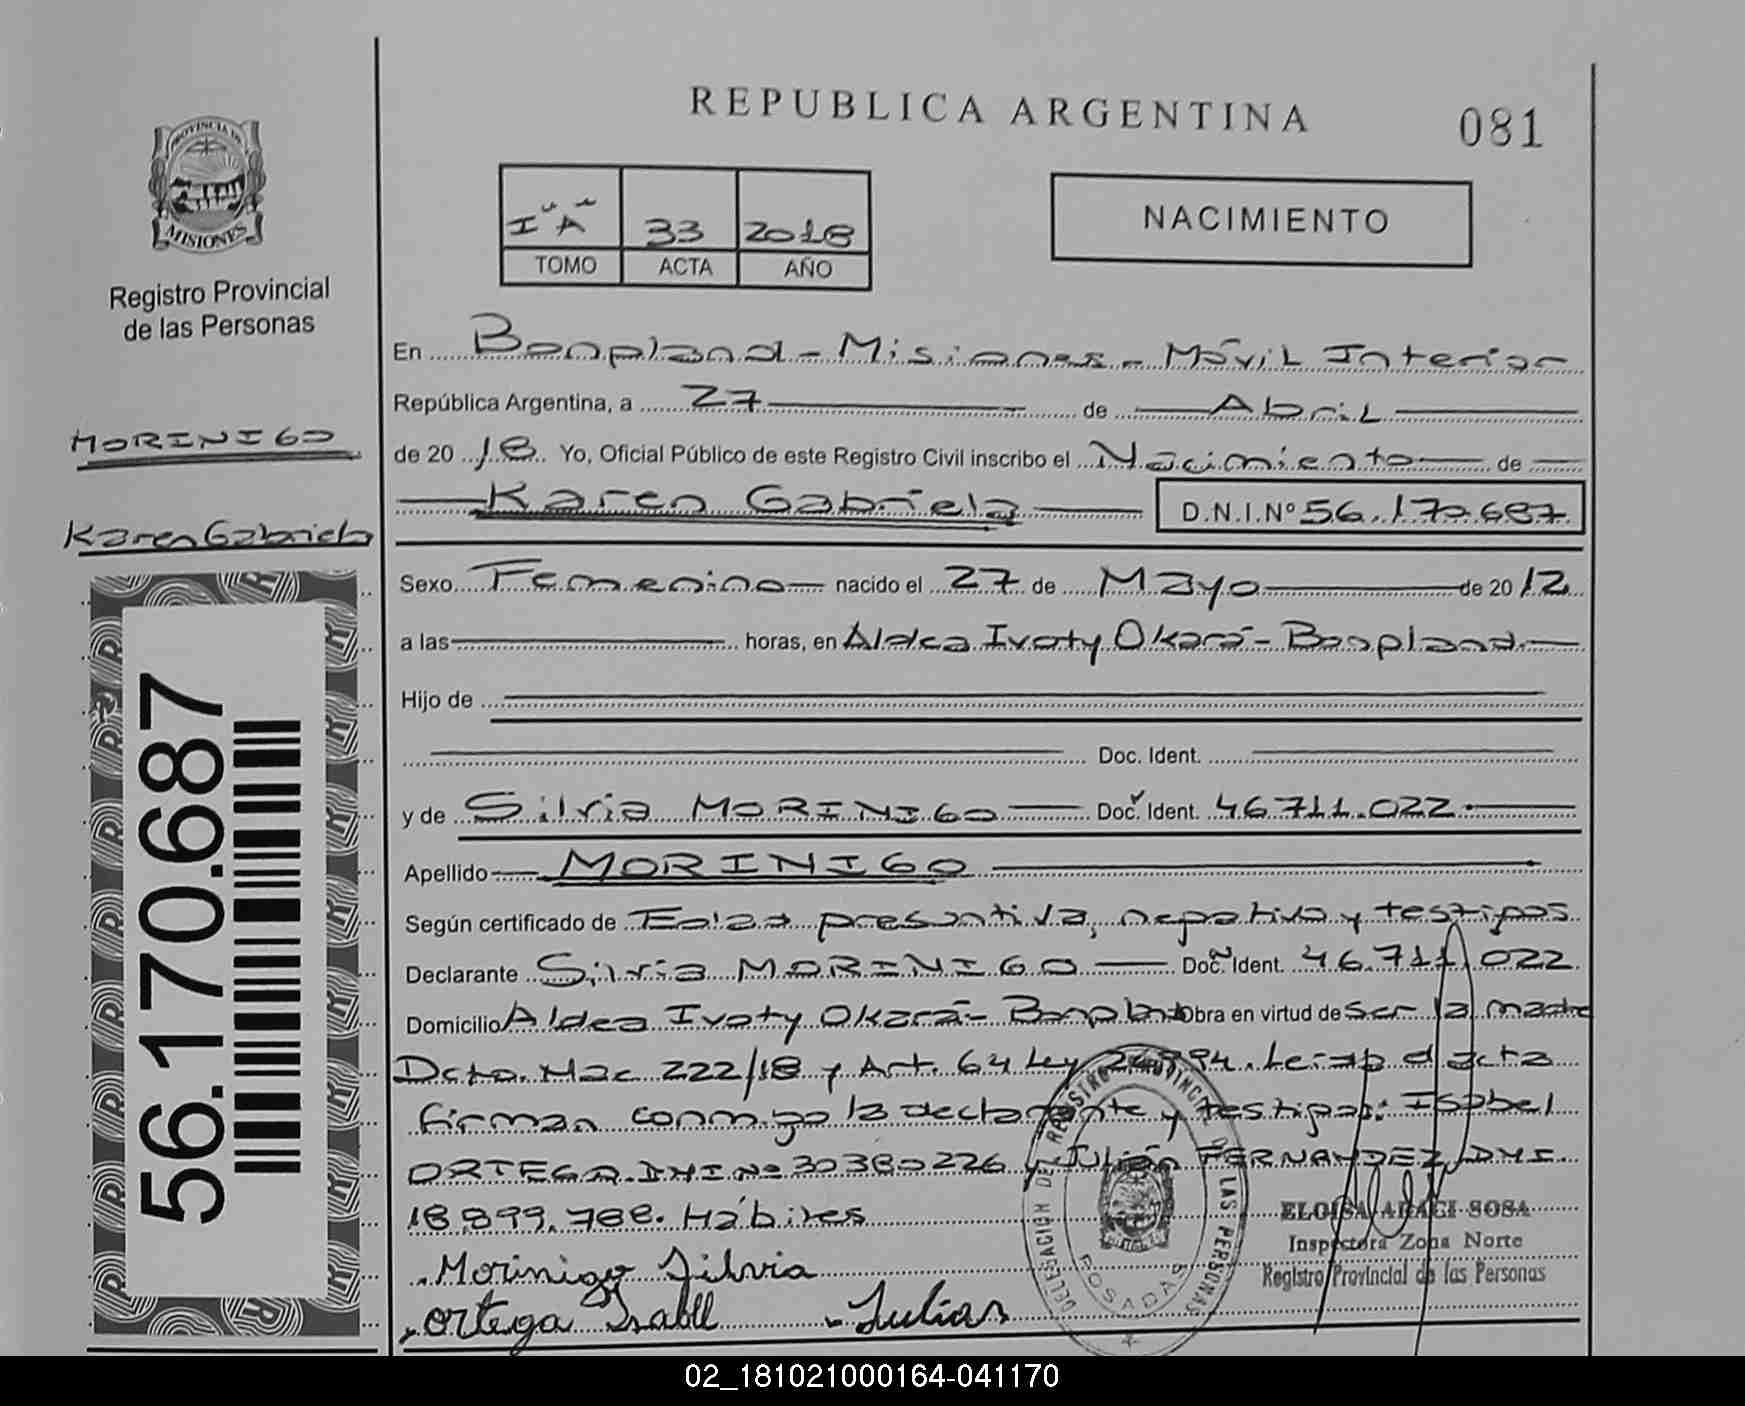 REPUBLICA ARGENTINA
081
PROVINCIA DE
MISIONES
Registro Provincial
de las Personas
I "A" 33 2018
TOMO ACTA AÑO
NACIMIENTO
MORINIGO
Karen Gabriela
56.170.687
En Bonpland - Misiones - Móvil Interior
República Argentina, a 27 de Abril
de 20 18 Yo, Oficial Público de este Registro Civil inscribo el Nacimiento de
Karen Gabriela D.N.I.Nº 56.170.687
Sexo Femenino nacido el 27 de Mayo de 20 12
a las horas, en Aldea Ivoty Okara - Bonpland
Hijo de
Doc. Ident.
y de Silvia MORINIGO Doc. Ident. 46.711.022
Apellido MORINIGO
Según certificado de Edad presuntiva, negativo y testigos
Declarante Silvia MORINIGO Doc. Ident. 46.711.022
Domicilio Aldea Ivoty Okara - Bonpland Obra en virtud de ser la madre
Dcto. Nac 222/18 y Art. 64 Ley Leída el acta
firman conmigo la declarante y testigos: Isabel
ORTEGA DNI Nº 30380226 y Julián FERNANDEZ DNI
18.899.788. Hábiles
Morinigo Silvia
ortega Isabll Julian
DELEGACION DE REGISTRO PROVINCIAL DE LAS PERSONAS
POSADAS
ELOISA ARACI SOSA
Inspectora Zona Norte
Registro Provincial de las Personas
02_181021000164-041170